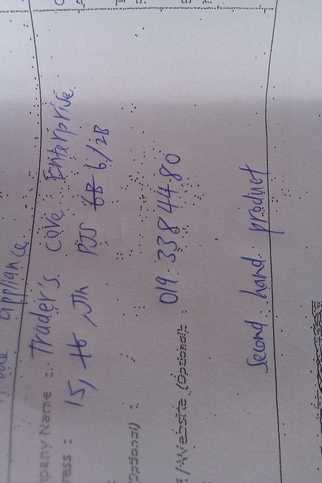 appliance
pany Name : Trader's cave Enterprise.
ress : 15, 16, Jln PJS 6B 6/2B
optional) :
019. 338 4480
/Website (Optional) :
Second hand product